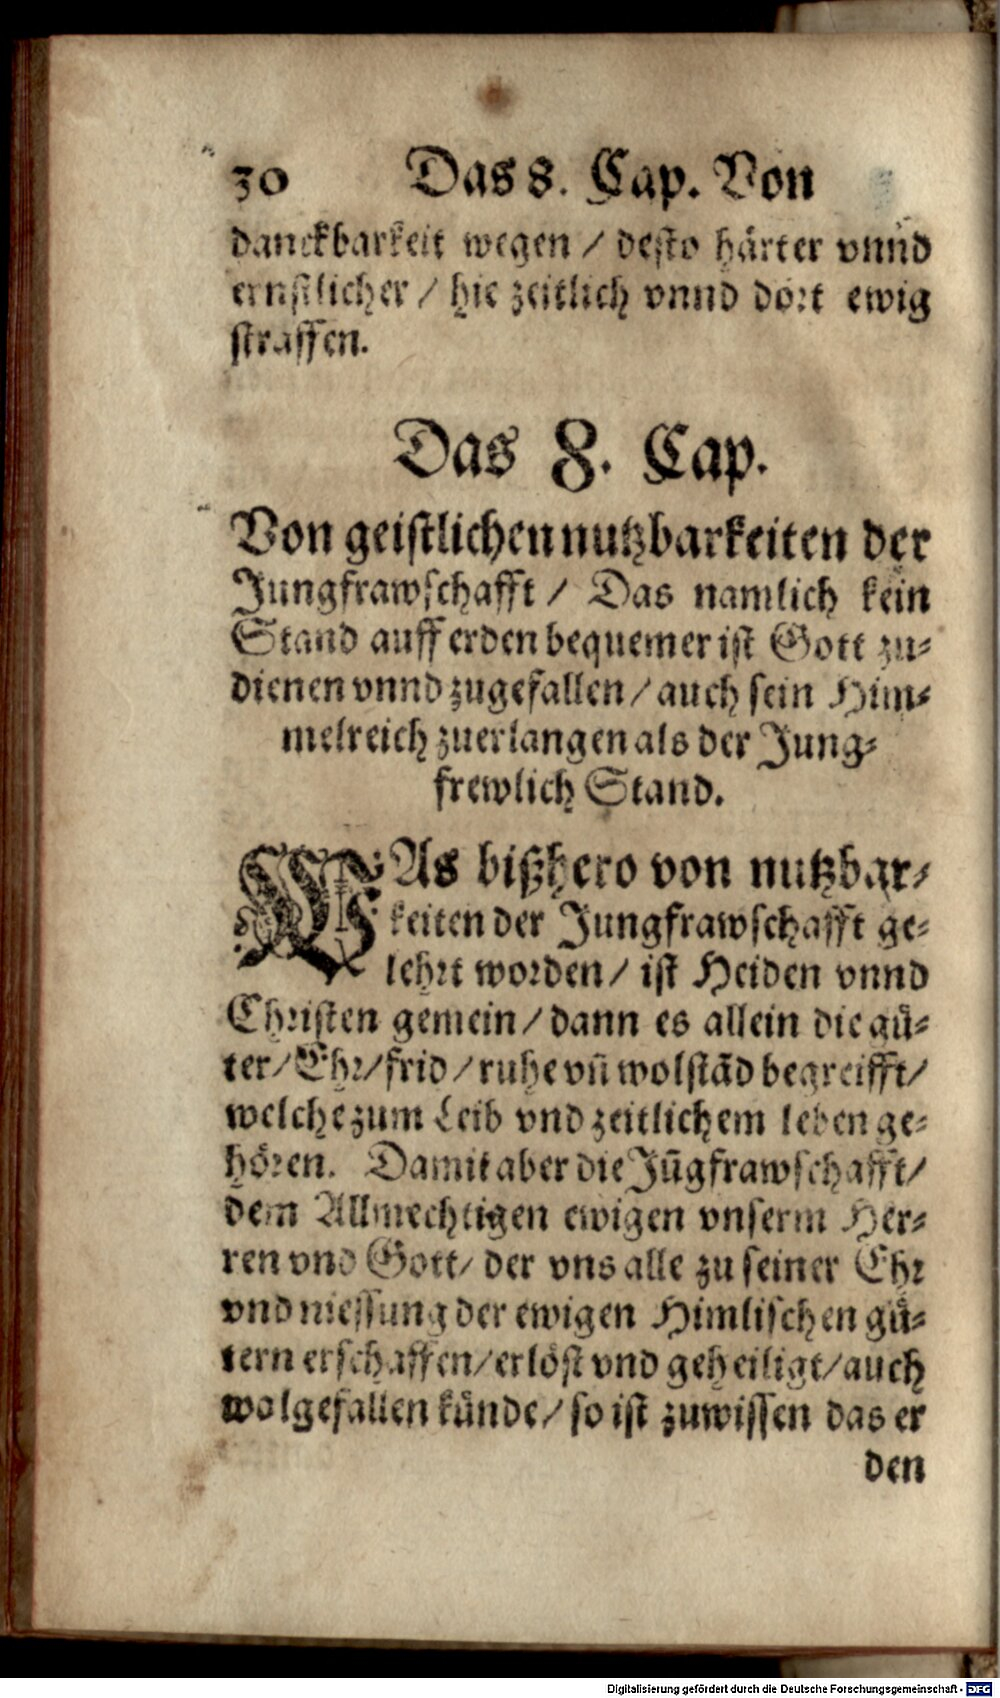 30 Das 8. Cap. Von
danckbarkeit wegen / desto härter vnnd
ernstlicher / hie zeitlich vnnd dort ewig
straffen.
Das 8. Cap.
Von geistlichen nutzbarkeiten der
Jungfrawschafft / Das namlich kein
Stand auff erden bequemer ist Gott zu-
dienen vnnd zugefallen / auch sein Him-
melreich zuerlangen als der Jung-
frewlich Stand.
WAs bißhero von nutzbar-
keiten der Jungfrawschafft ge-
lehrt worden / ist Heiden vnnd
Christen gemein / dann es allein die gü-
ter / Ehr / frid / ruhe vñ wolstãd begreifft /
welche zum Leib vnd zeitlichem leben ge-
hören. Damit aber die Jũgfrawschafft /
dem Allmechtigen ewigen vnserm Her-
ren vnd Gott / der vns alle zu seiner Ehr
vnd niessung der ewigen Himlischen gü-
tern erschaffen / erlöst vnd geheiligt / auch
wolgefallen künde / so ist zuwissen das er
den
Digitalisierung gefördert durch die Deutsche Forschungsgemeinschaft - DFG